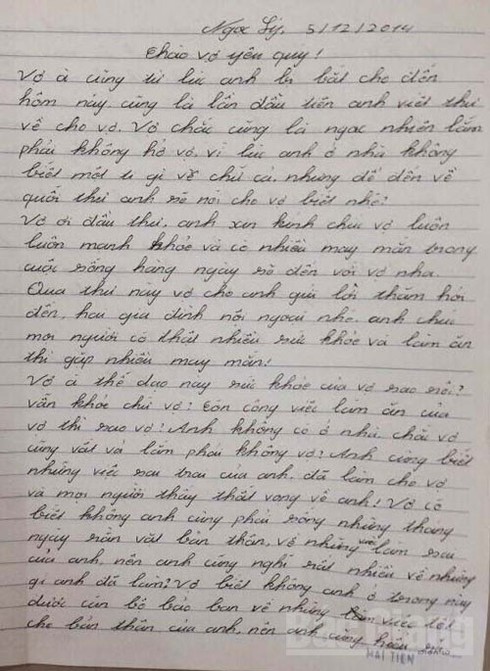 Ngọc Lý, 5/12/2014
Chào vợ yêu quý!
Vợ à cũng từ lúc anh bị bắt cho đến
hôm nay cũng là lần đầu tiên anh viết thư
về cho vợ. Vợ chắc cũng là ngạc nhiên lắm
phải không hở vợ, vì lúc anh ở nhà không
biết một tí gì về chữ cả, nhưng để đến về
cuối thư anh sẽ nói cho vợ biết nhé!
Vợ ơi đầu thư, anh xin kính chúc vợ luôn
luôn mạnh khỏe và có nhiều may mắn trong
cuộc sống hàng ngày sẽ đến với vợ nha.
Qua thư này vợ cho anh gửi lời thăm hỏi
đến, hai gia đình nội ngoại nhé, anh chúc
mọi người có thật nhiều sức khỏe và làm ăn
thì gặp nhiều may mắn!
Vợ à thế dạo này sức khỏe của vợ sao rồi?
vẫn khỏe chứ vợ? Còn công việc làm ăn của
vợ thì sao vợ! Anh không có ở nhà, chắc vợ
cũng vất vả lắm phải không vợ? Anh cũng biết
những việc sai trai của anh, đã làm cho vợ
và mọi người thấy thất vọng về anh! Vợ có
biết không anh cũng phải sống những tháng
ngày rằn vặt bản thân, về những việc làm sai
của anh, nên anh cũng nghĩ rất nhiều về những
gì anh đã làm? Vợ biết không anh ở trong này
được cán bộ bảo ban về những việc tốt
cho bản thân của anh, nên anh cũng hiểu
HẢI TIẾN